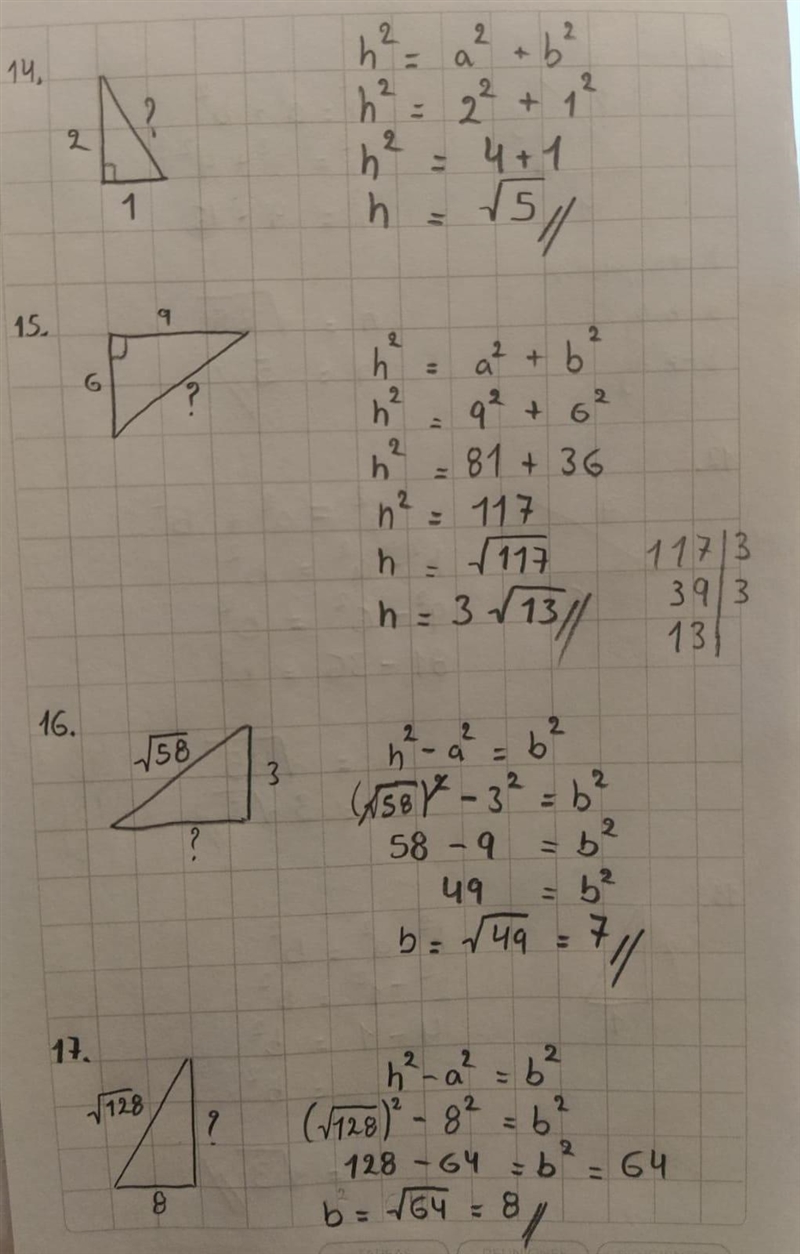 14.
2
?
1
h² = a² + b²
h² = 2² + 1²
h² = 4 + 1
h = √5 //
15.
9
6
?
h² = a² + b²
h² = 9² + 6²
h² = 81 + 36
h² = 117
h = √117
h = 3 √13 //
117 | 3
39 | 3
13 |
16.
√58
3
?
h² - a² = b²
(√58)² - 3² = b²
58 - 9 = b²
49 = b²
b = √49 = 7 //
17.
√128
?
8
h² - a² = b²
(√128)² - 8² = b²
128 - 64 = b² = 64
b = √64 = 8 //